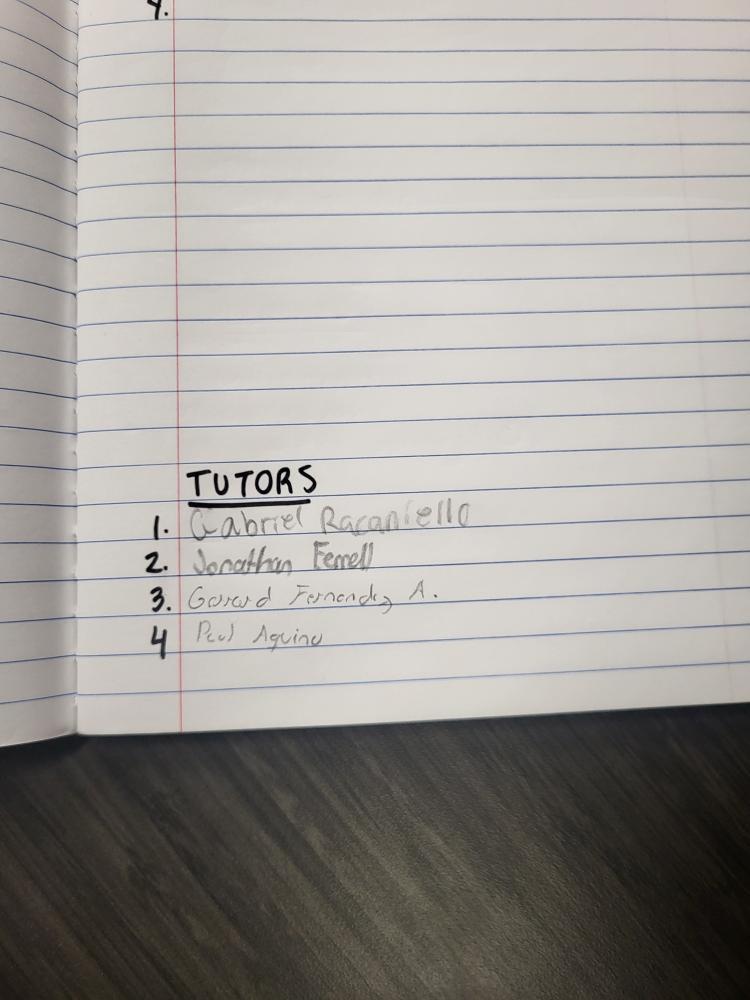 4.
TUTORS
1. Gabriel Racaniello
2. Jonathan Ferrell
3. Gerard Fernandez A.
4 Paul Aquino